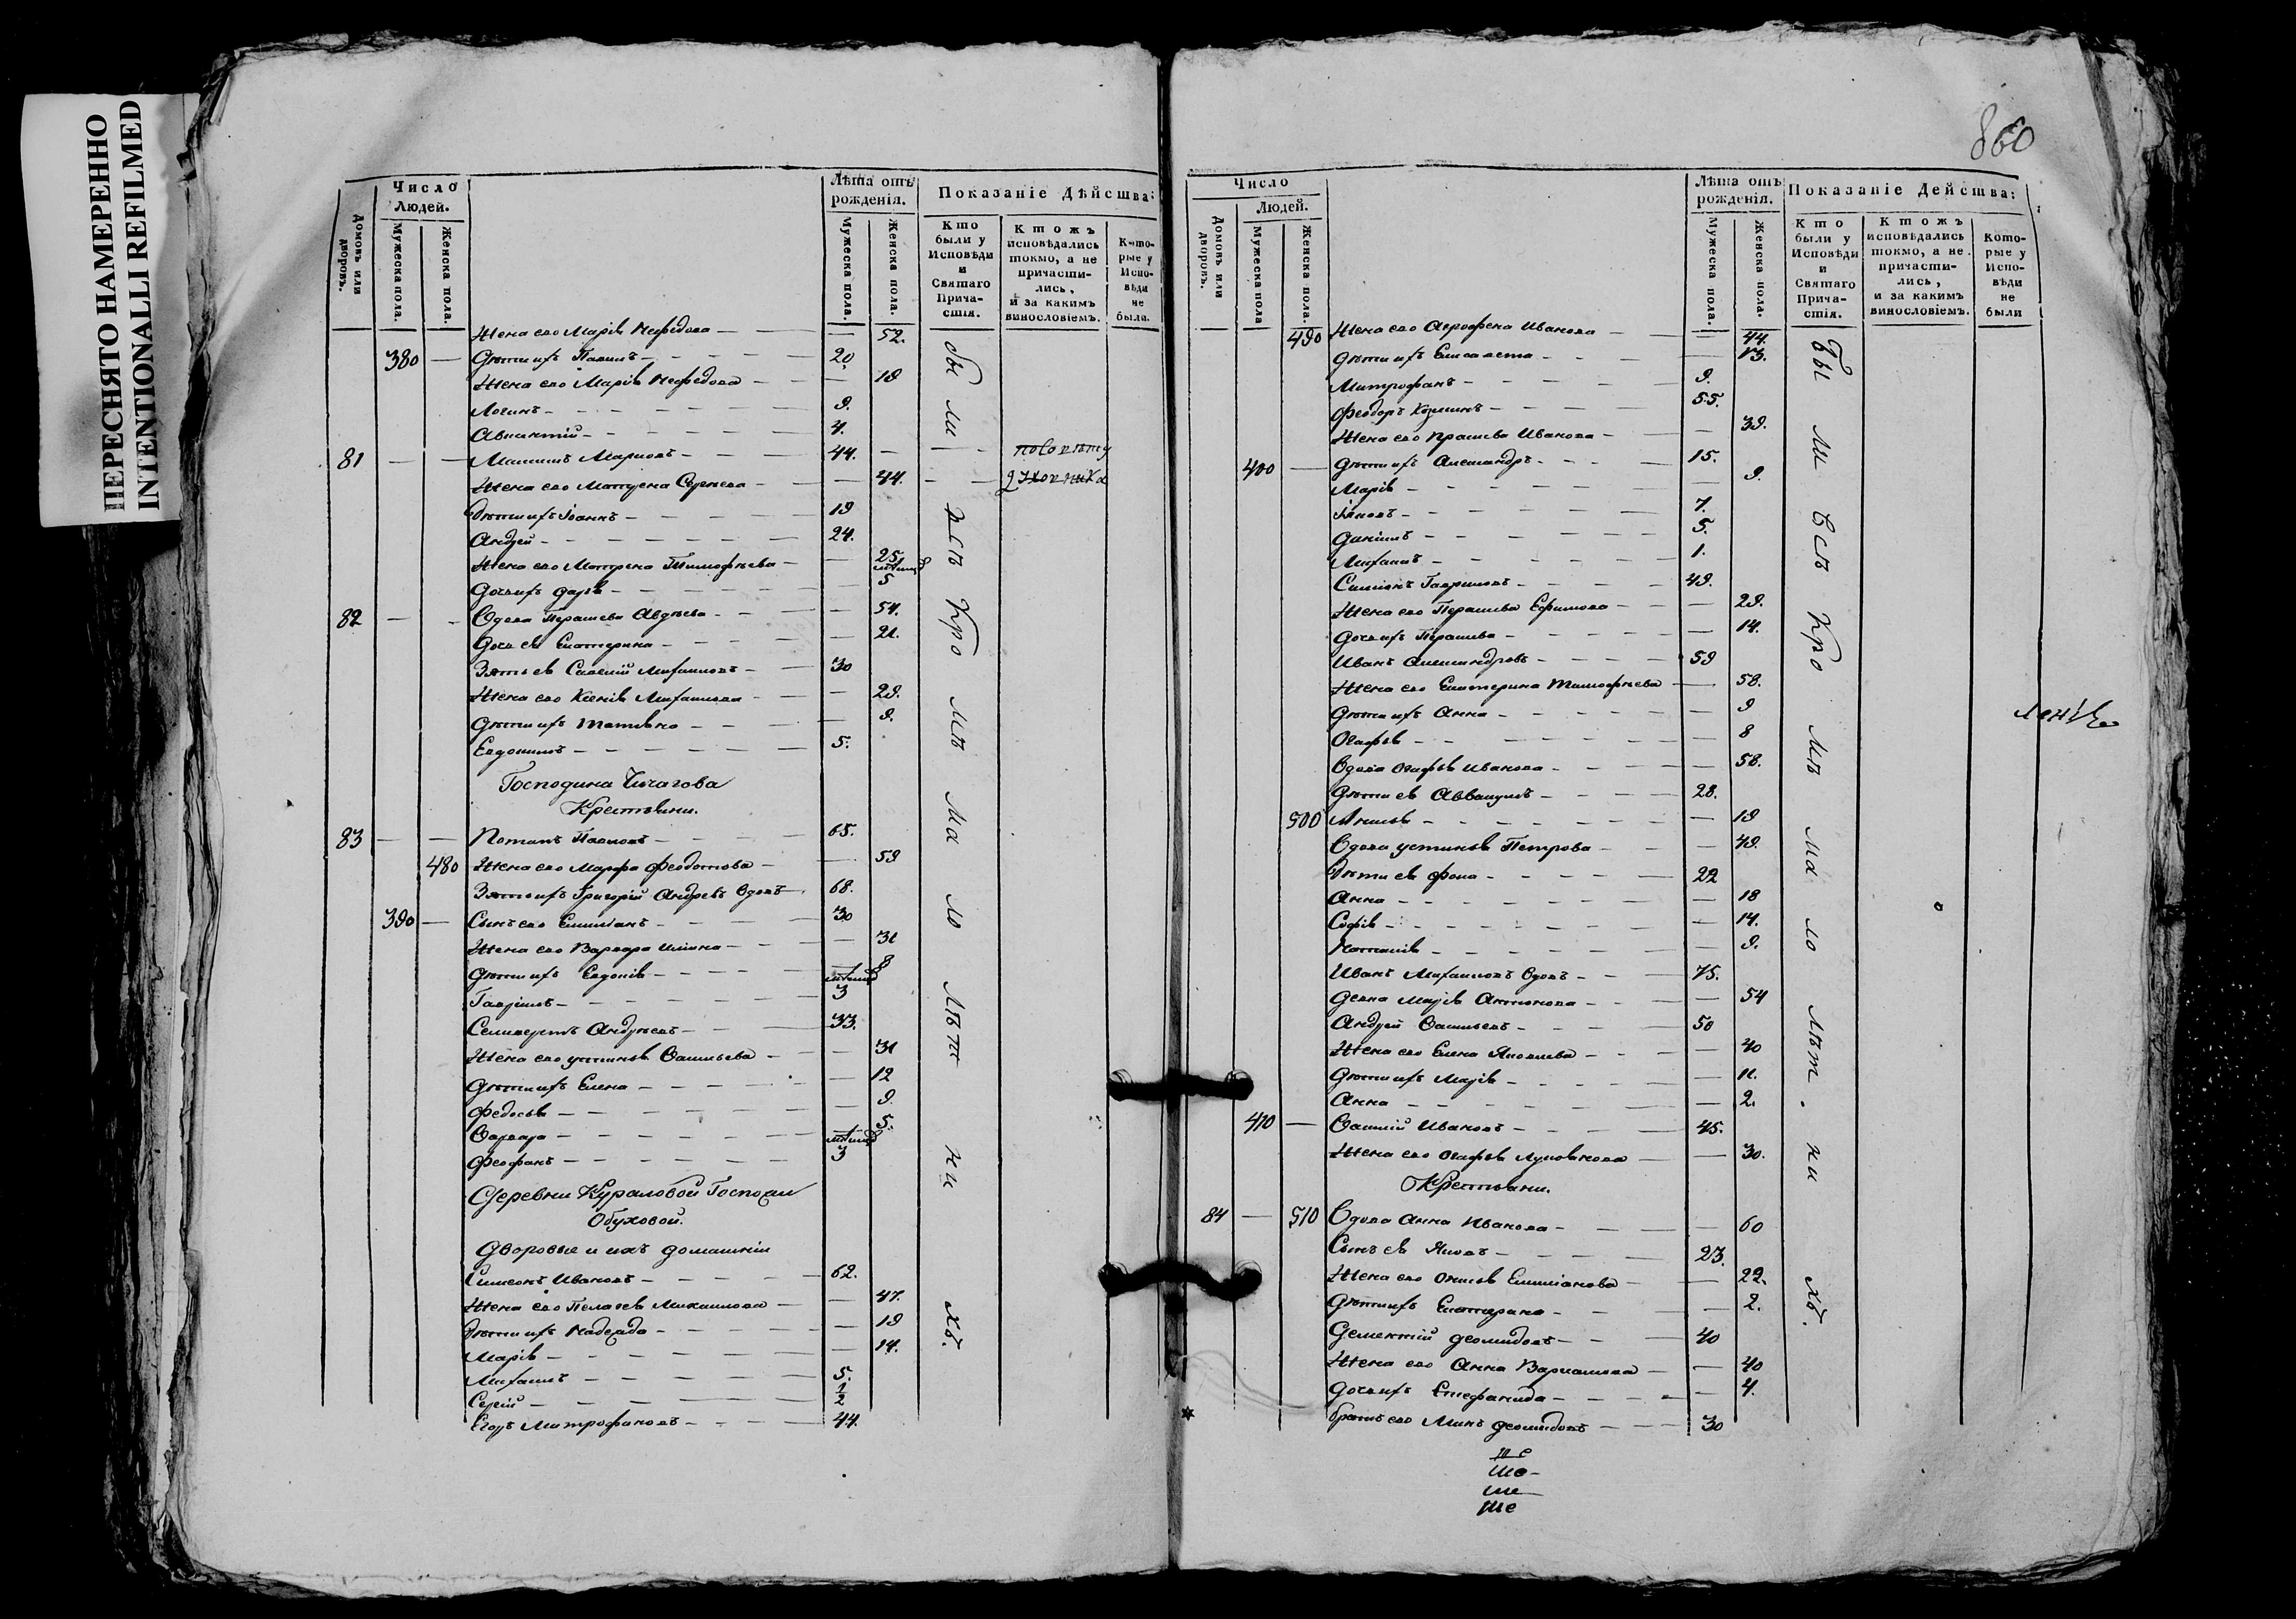 ПЕРЕСНЯТО НАМЕРЕННО
INTENTIONALLI REFILMED
860
Число
Людей.
Домовъ или дворовъ.
Мужеска пола.
Женска пола.
Лѣта отъ рожденія.
Мужеска пола.
Женска пола.
Показаніе Дѣйства:
Кто были у Исповѣди и Святаго Прича-стія.
Ктожъ исповѣдались токмо, а не причасти-лись, и за какимъ винословіемъ.
Кото-рые у Испо-вѣди не были.
Жена его Марія Нефедова — 52.
380 — Дѣти ихъ Павилъ — 20.
Жена его Марія Нефедова — 19
Логинъ — 9.
Авксентій — 4.
81 — Марковъ — 44.
Жена его Матрена Сергѣева — 44.
Дѣти ихъ Іоаннъ — 19
Андрей — 24.
Жена его Матрена Тимофѣева — 25
Дочь ихъ Дарія — 5
82 — Вдова Парасковья Авдѣева — 54.
Дочь ея Екатерина — 21.
Зять ея Савелій Михаиловъ — 30
Жена его Ксенія Михаилова — 29.
Дѣти ихъ Татіяна — 9.
Евдокимъ — 5.
Господина Чичагова
Крестьяни.
83 — Потапъ Павловъ — 65.
480 Жена его Марфа Федотова — 59
Зять ихъ Григорій Андреевъ Вдовъ — 68.
390 — Сынъ его Емиліанъ — 30
Жена его Варвара — 31
Дѣти ихъ Евдокія — 8
Гавріилъ — 3
Селиверстъ Андрѣевъ — 33.
Жена его Устинья Васильева — 31
Дѣти ихъ Елена — 12
Федосья — 9.
Варвара — 5.
Феофанъ — 3
Деревни Кураловой Госпожи
Обуховой.
Дворовые и ихъ домашніи
Симеонъ Ивановъ — 62.
Жена его Пелагея Михаилова — 47.
Дѣти ихъ Надежда — 19
Марія — 14.
Михаилъ — 5.
Сергій — 2
Егоръ Митрофановъ — 44.
бы ли всѣ Кро мѣ ма ло лѣт ни хъ.
Число
Людей.
Домовъ или дворовъ.
Мужеска пола
Женска пола.
Лѣта отъ рожденія.
Мужеска пола.
Женска пола.
Показаніе Действа:
Кто были у Исповѣди и Святаго Прича-стія.
Ктожъ исповѣдались токмо, а не причасти-лись, и за какимъ винословіемъ.
Кото-рые у Испо-вѣди не были
490 Жена его Агрофена Иванова — 44.
Дѣти ихъ Елисавета — 13.
Митрофанъ — 9.
Феодоръ Козминъ — 55.
Жена его Прасковья Иванова — 39.
400 — Дѣти ихъ Александръ — 15.
Марія — 9.
Іаковъ — 7.
Даніилъ — 5.
Михаилъ — 1.
Симеонъ Гавриловъ — 49.
Жена его Парасковья Ефимова — 29.
Дочь ихъ Парасковья — 14.
Иванъ Александровъ — 59
Жена его Екатерина Тимофѣева — 58.
Дѣти ихъ Анна — 9
Огафья — 8
Вдова Огафья Иванова — 58.
Дѣти ея Аввакумъ — 28.
500 Акилина — 19
Вдова Устинья Петрова — 49.
Дѣти ея Фока — 22
Анна — 18
Софія — 14.
Наталія — 9.
Иванъ Михаиловъ Вдовъ — 75.
Девка Марія Антонова — 54
Андрей Васильевъ — 50
Жена его Елена Яковлева — 40
Дѣти ихъ Марія — 11.
Анна — 2.
410 — Василій Ивановъ — 45.
Жена его Огафья Лукоянова — 30.
Крестьяни.
84 — 510 Вдова Анна Иванова — 60
Сынъ ея Яковъ — 23.
Жена его Емиліанова — 22.
Дѣти ихъ Екатерина — 2.
Дементій Деомидовъ — 40
Жена его Анна Варламова — 40
Дочь ихъ Стефанида — 4.
Братъ его Минъ Деомидовъ — 30
Бы ли всѣ Кро мѣ ма ло лѣт ни хъ.